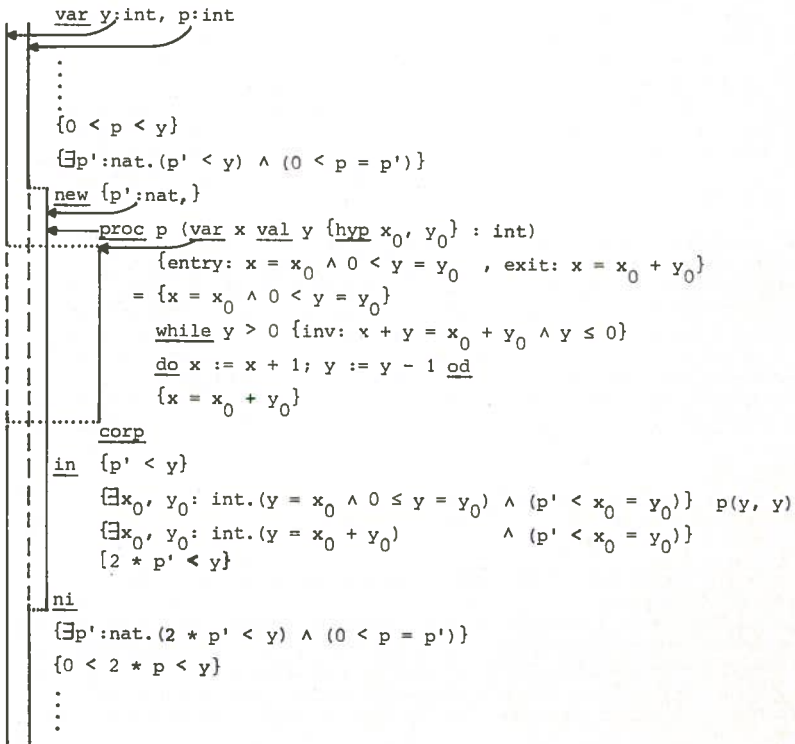 var y:int, p:int
{0 < p < y}
{∃p':nat.(p' < y) ∧ (0 < p = p')}
new {p':nat,}
proc p (var x val y {hyp x₀, y₀} : int)
{entry: x = x₀ ∧ 0 < y = y₀ , exit: x = x₀ + y₀}
= {x = x₀ ∧ 0 < y = y₀}
while y > 0 {inv: x + y = x₀ + y₀ ∧ y ≤ 0}
do x := x + 1; y := y - 1 od
{x = x₀ + y₀}
corp
in {p' < y}
{∃x₀, y₀: int.(y = x₀ ∧ 0 ≤ y = y₀) ∧ (p' < x₀ = y₀)} p(y, y)
{∃x₀, y₀: int.(y = x₀ + y₀) ∧ (p' < x₀ = y₀)}
[2 * p' < y}
ni
{∃p':nat.(2 * p' < y) ∧ (0 < p = p')}
{0 < 2 * p < y}